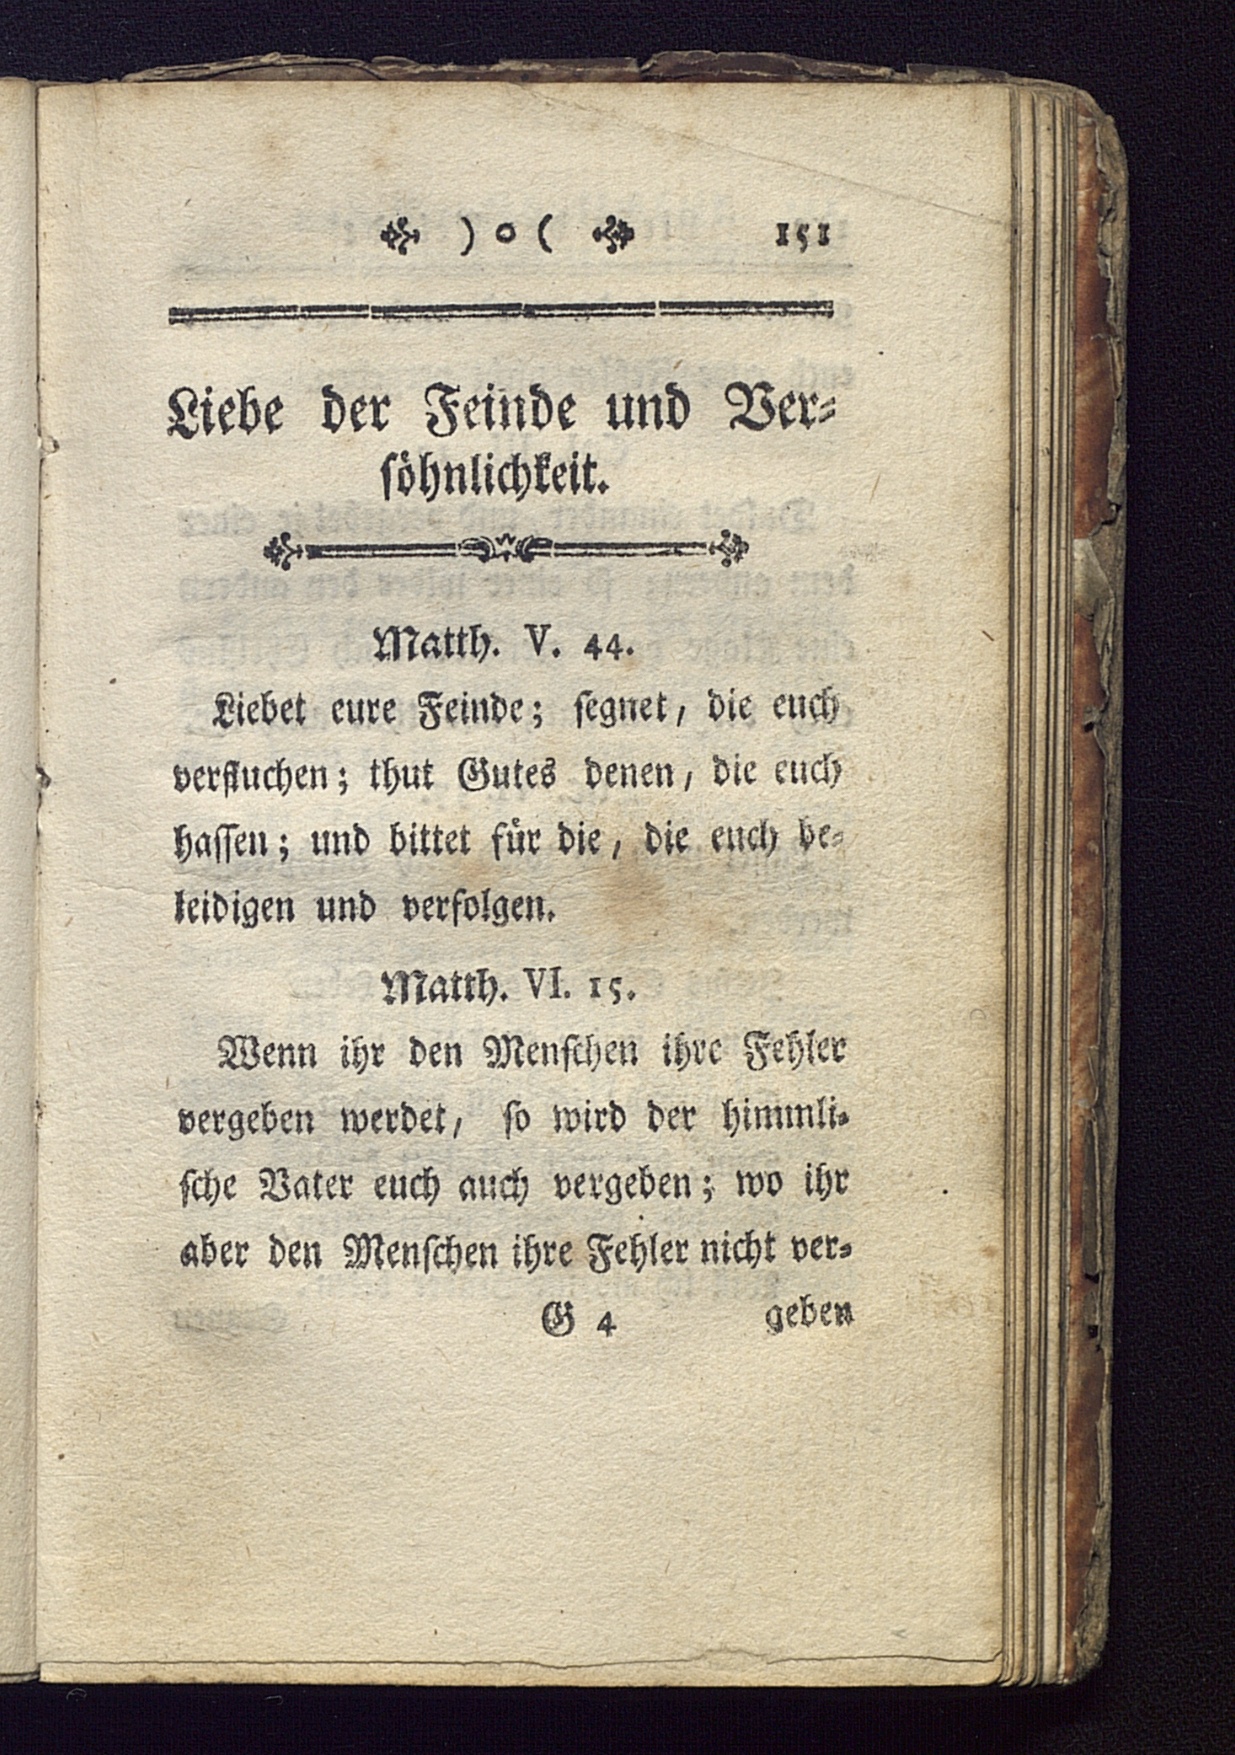 ) o ( 151
Liebe der Feinde und Ver⸗
ſöhnlichkeit.
Matth. V. 44.
Liebet eure Feinde; ſegnet, die euch
verfluchen; thut Gutes denen, die euch
haſſen; und bittet für die, die euch be⸗
leidigen und verfolgen.
Matth. VI. 15.
Wenn ihr den Menſchen ihre Fehler
vergeben werdet, ſo wird der himmli⸗
ſche Vater euch auch vergeben; wo ihr
aber den Menſchen ihre Fehler nicht ver⸗
G 4 geben